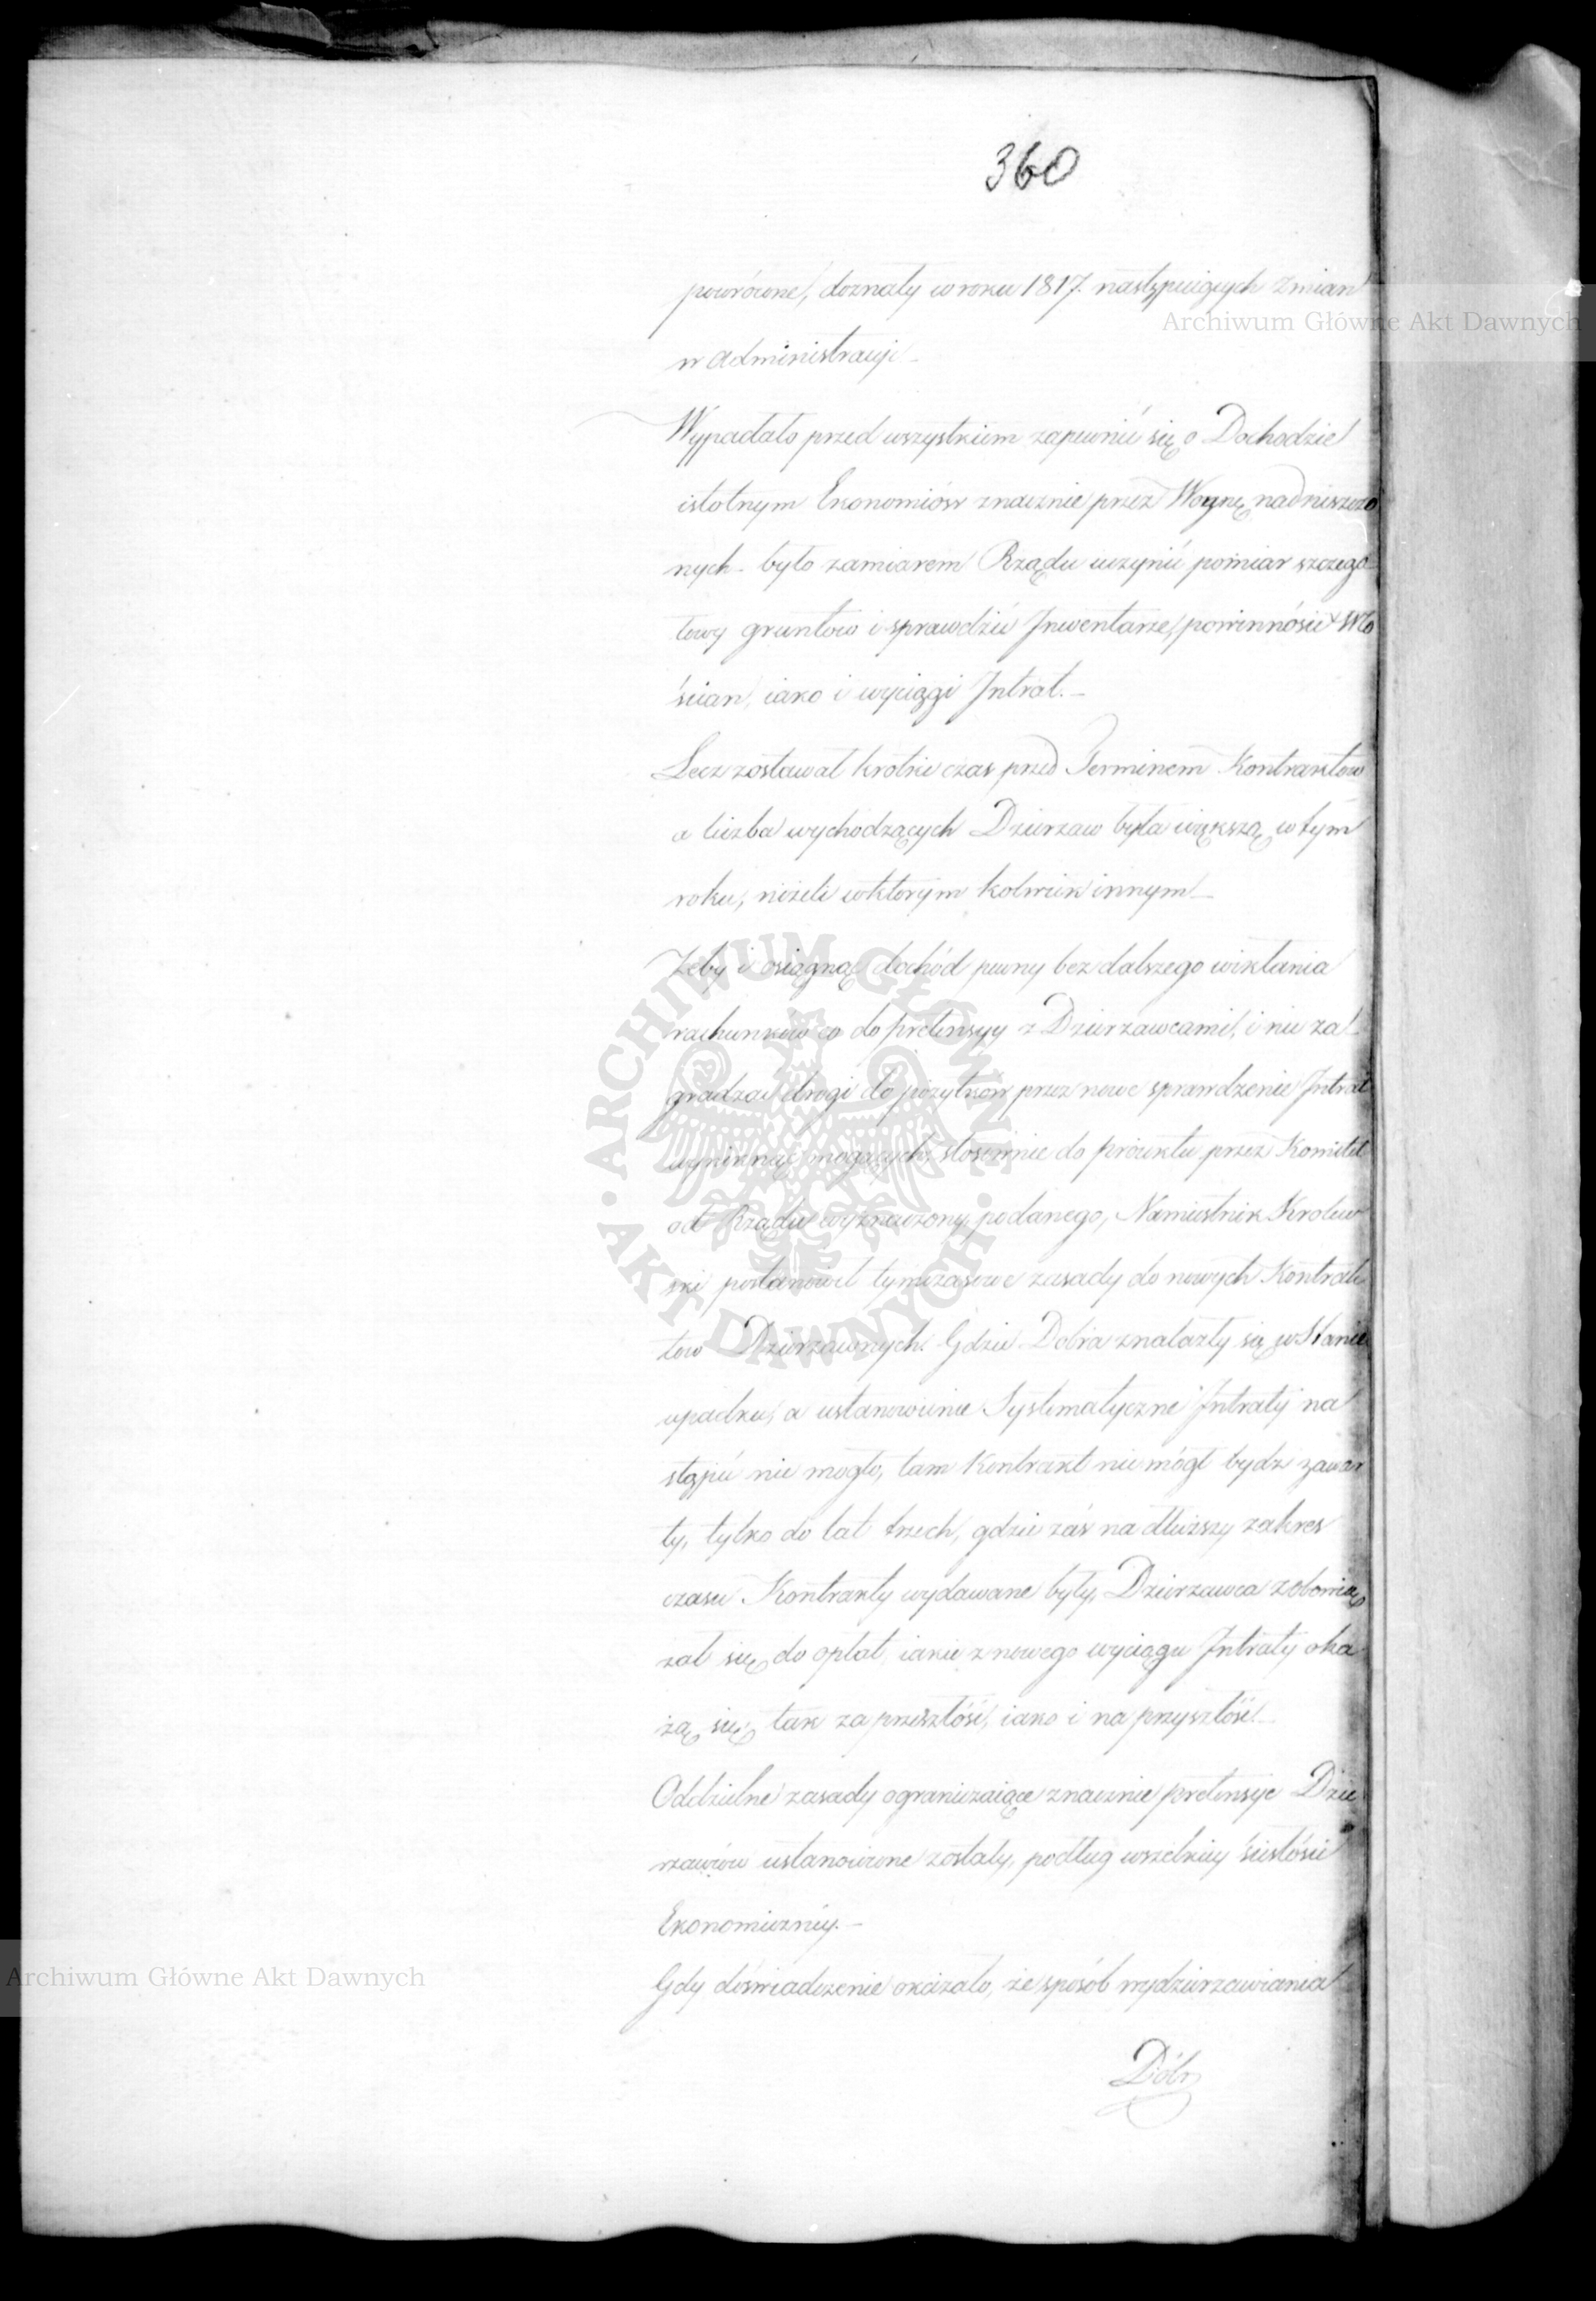 360
powrócone, doznały w roku 1817. następuiących zmian
w administracyi –
Wypadało przed wszystkiem zapewnić się o Dochodzie
istotnym Ekonomiów znacznie przez Woynę nadniszczo
nych – było zamiarem Rządu uczynić pomiar szczegó=
łowy gruntów i sprawdzić Inwentarze, powinności Wło
ścian, iako i wyciągi Intrat. –
Lecz zostawał krótki czas przed Terminem Kontraktów
a liczba wychodzących Dzierzaw była większą w tym
roku, niżeli w którym kolwiek innym –
Żeby i osiągnąć dochód pewny bez dalszego wikłania
rachunków co do pretensyy z Dzierzawcami, i nie za
gradzać drogi do pożytków przez nowe sprawdzenie Intrat
wyniknąć mogących, stosownie do proiektu przez Komitet
od Rządu wyznaczony podanego, Namiestnik Królew
ski postanowił tymczasowe zasady do nowych Kontrak
tów Dzierzawnych. Gdzie Dobra znalazły się w Stanie
upadku, a ustanowienie Systematyczne Intraty na
stąpić nie mogło, tam Kontrakt nie mógł bydź zawar
ty, tylko do lat trzech, gdzie zaś na dłuższy zakres
czasu Kontrakty wydawane były, Dzierzawca zobowią
zał się do opłat iakie z nowego wyciągu Intraty oka
żą się, tak za przeszłość, iako i na przyszłość. –
Oddzielne zasady ograniczaiące znacznie pretensye Dzie
rzawców ustanowione zostały, podług wszelkiey ścisłości
Ekonomiczney. –
Gdy doświadczenie okazało, że sposób wydzierzawiania
Dóbr
Archiwum Główne Akt Dawnych
ARCHIWUM GŁÓWNE AKT DAWNYCH
Archiwum Główne Akt Dawnych